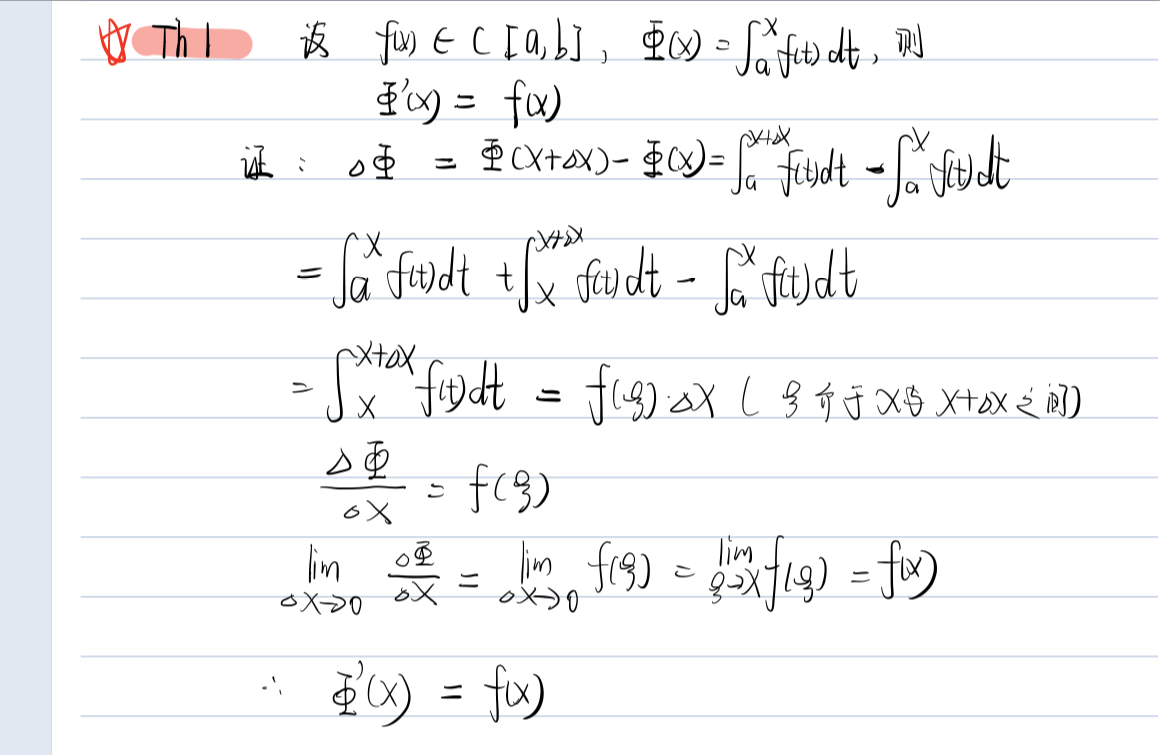 ☆ Th 1 设 f(x) ∈ C [a,b], Φ(x) = ∫ₐˣ f(t) dt, 则
Φ'(x) = f(x)
证: △Φ = Φ(x+△x) - Φ(x) = ∫ₐ^{x+△x} f(t)dt - ∫ₐˣ f(t)dt
= ∫ₐˣ f(t)dt + ∫ₓ^{x+△x} f(t)dt - ∫ₐˣ f(t)dt
= ∫ₓ^{x+△x} f(t)dt = f(ξ)·△x ( ξ介于x与x+△x之间)
△Φ/△x = f(ξ)
lim_{△x→0} △Φ/△x = lim_{△x→0} f(ξ) = lim_{ξ→x} f(ξ) = f(x)
∴ Φ'(x) = f(x)